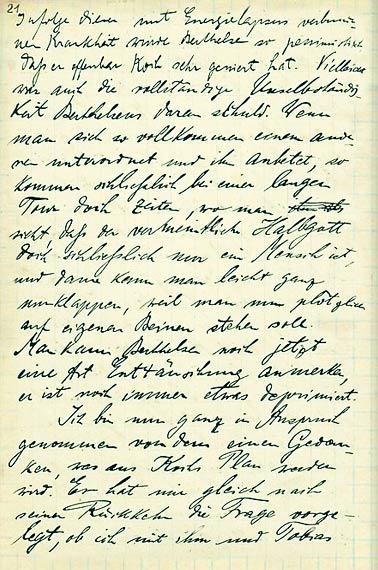 21
Infolge dieser mit Energielapsus verbunde-
nen Krankheit wurde Berthelsen so pessimistisch
dass er offenbar Koch sehr geniert hat. Vielleicht
war auch die vollständige Unselbständig-
keit Berthelsens daran schuld. Wenn
man sich so vollkommen einem ande-
ren unterordnet und ihn anbetet, so
kommen schliesslich bei einer langen
Tour doch Zeiten, wo man
sieht, dass der vermeintliche Halbgott
doch schliesslich nur ein Mensch ist,
und dann kann man leicht ganz
umklappen, weil man nun plötzlich
auf eigenen Beinen stehen soll.
Man kann Berthelsen noch jetzt
eine Art Enttäuschung anmerken,
er ist noch immer etwas deprimiert.
Ich bin nun ganz in Anspruch
genommen von dem einen Gedan-
ken, was aus Kochs Plan werden
wird. Er hat mir gleich nach
seiner Rückkehr die Frage vorge-
legt, ob ich mit ihm und Tobias